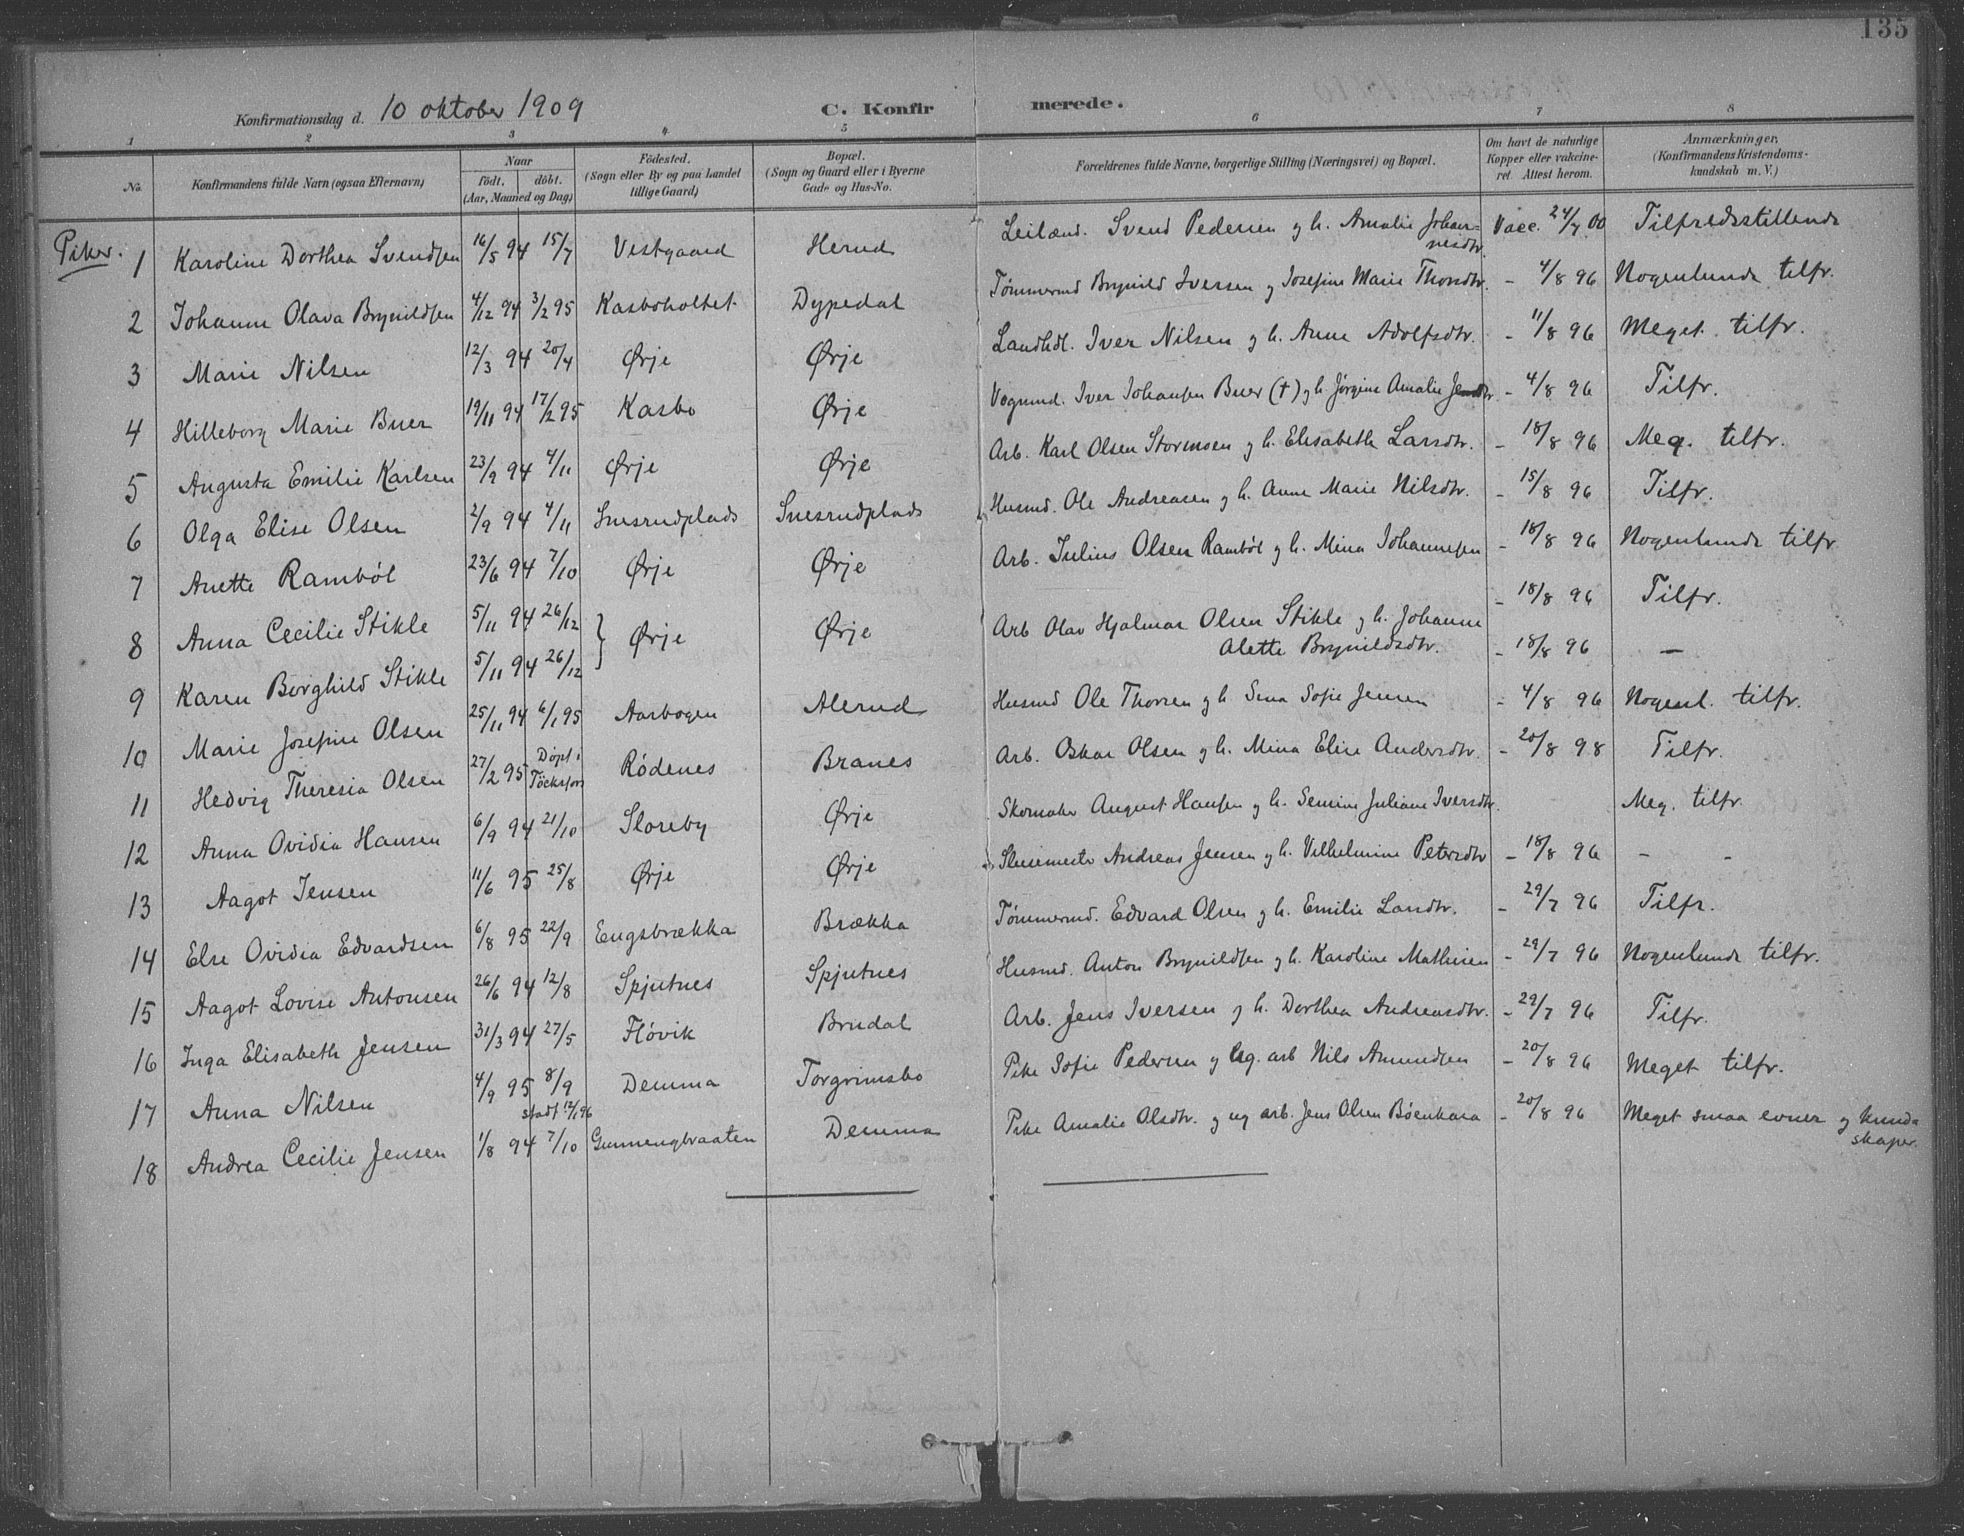 135
Konfirmationsdag d. 10 oktober 1909 C. Konfirmerede.
1 2 3 4 5 6 7 8
No. Konfirmandens fulde Navn (ogsaa Efternavn) Naar födt. döbt. (Aar, Maaned og Dag) Födested. (Sogn eller By og paa Landet tillige Gaard) Bopæl. (Sogn og Gaard eller i Byerne Gade og Hus-No. Forældrenes fulde Navne, borgerlige Stilling (Næringsvei) og Bopæl. Om havt de naturlige Kopper eller vakcineret. Attest herom. Anmærkninger, (Konfirmandens Kristendomskundskab m. V.)
Piker.
1 Karoline Dorthea Svendsen 16/5 94 15/7 Vestgaard Herud Leilænd. Svend Pedersen og h. Amalie Johannesdtr. Vacc. 24/7 00 Tilfredsstillende
2 Johanne Olava Brynildsen 4/12 94 3/2 95 Kasboholtet Dypedal Tømmermd Brynild Iversen og Josefine Marie Thorsdtr. - 4/8 96 Nogenlunde tilfr.
3 Marie Nilsen 12/3 94 20/4 Ørje Ørje Landhdl. Iver Nilsen og h. Anne Adolfsdtr. - 11/8 96 Meget tilfr.
4 Hilleborg Marie Buer 19/11 94 17/2 95 Kasbo Ørje Vognmd. Iver Johansen Buer (†) og h. Jørgine Amalie Jensdtr. - 4/8 96 Tilfr.
5 Augusta Emilie Karlsen 23/9 94 4/11 Ørje Ørje Arb. Karl Olsen Stormoen og h. Elisabeth Larsdtr. - 18/8 96 Meg. tilfr.
6 Olga Elise Olsen 2/9 94 4/11 Snesrudplads Snesrudplads Husmd. Ole Andreasen og h. Anne Marie Nilsdtr. - 15/8 96 Tilfr.
7 Anette Rambøl 23/6 94 7/10 Ørje Ørje Arb. Julius Olsen Rambøl og h. Mina Johannesen - 18/8 96 Nogenlunde tilfr.
8 Anna Cecilie Stikle 5/11 94 26/12 } Ørje Ørje Arb Olav Hjalmar Olsen Stikle og h. Johanne - 18/8 96 Tilfr.
9 Karen Borghild Stikle 5/11 94 26/12 Alette Brynildsdtr. - 18/8 96 —
10 Marie Josefine Olsen 25/11 94 6/1 95 Aarbogen Alerud Husmd Ole Thorsen og h Sina Sofie Jensen - 4/8 96 Nogenl. tilfr.
11 Hedvig Theresia Olsen 27/2 95 Döpt i Töcksfors Rødenes Branes Arb. Oskar Olsen og h. Mina Elise Andersdtr. - 20/8 98 Tilfr.
12 Anna Ovidia Hansen 6/9 94 21/10 Sloreby Ørje Skomaker August Hansen og h. Semine Juliane Iversdtr. Meg. tilfr.
13 Aagot Jensen 11/6 95 25/8 Ørje Ørje Slusemester Andreas Jensen og h. Vilhelmine Petersdtr - 18/8 96 - -
14 Else Ovidia Edvardsen 6/8 95 22/9 Engsbrækka Brækka Tømmermd. Edvard Olsen og h. Emilie Larsdtr. - 29/7 96 Tilfr.
15 Aagot Lovise Antonsen 26/6 94 12/8 Spjutnes Spjutnes Husmd. Anton Brynildsen og h. Karoline Mathisen - 29/7 96 Nogenlunde tilfr.
16 Inga Elisabeth Jensen 31/3 94 27/5 Fløvik Brudal Arb. Jens Iversen og h. Dorthea Andreasdtr. - 29/7 96 Tilfr.
17 Anna Nilsen 4/9 95 8/9 stadf 12/1 96 Demma Torgrimsbo Pike Sofie Pedersen og ug. arb Nils Amundsen - 20/8 96 Meget tilfr.
18 Andrea Cecilie Jensen 1/8 94 7/10 Gunnengbraaten Demma Pike Amalie Olsdtr. og ug arb. Jens Olsen Böenkasa - 20/8 96 Meget smaa evner og kundskaper.